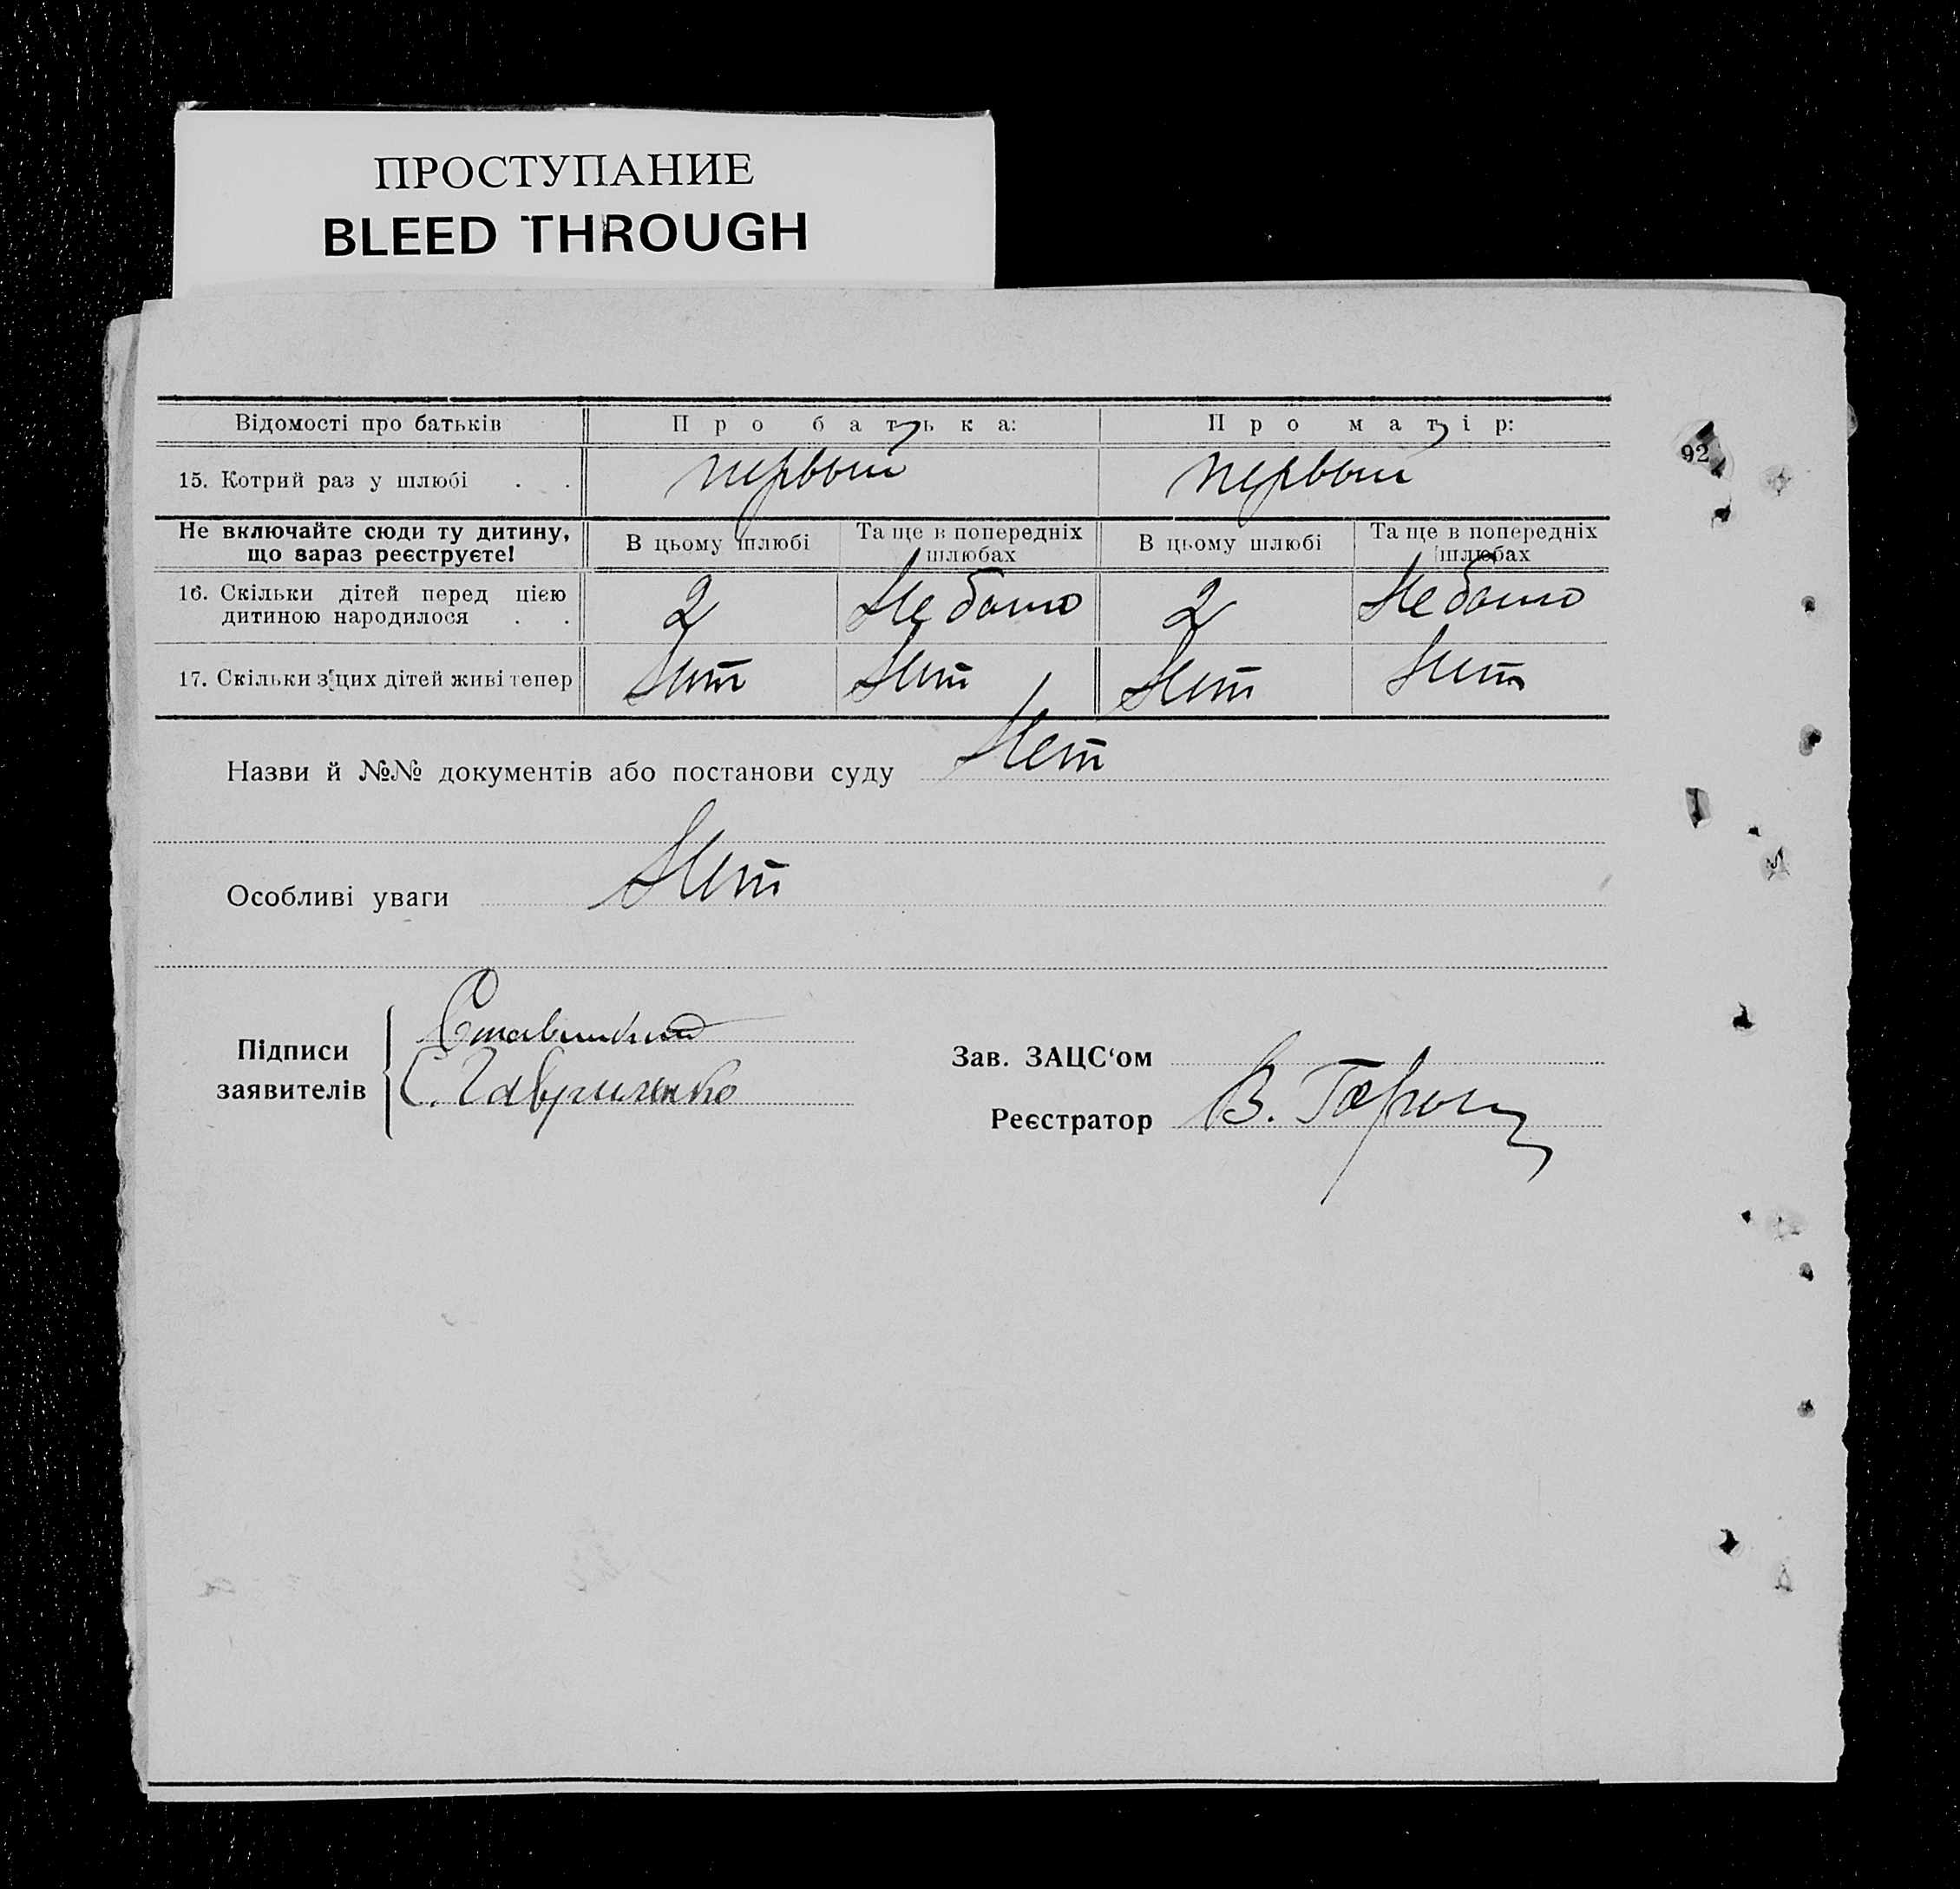 ПРОСТУПАНИЕ
BLEED THROUGH
Відомості про батьків Про батька: Про матір:
92
15. Котрий раз у шлюбі . . первый первый
Не включайте сюди ту дитину, що зараз реєструєте! В цьому шлюбі Та ще в попередніх шлюбах В цьому шлюбі Та ще в попередніх шлюбах
16. Скільки дітей перед цією дитиною народилося . . 2 Не было 2 Не было
17. Скільки з цих дітей живі тепер Нет Нет Нет Нет
Назви й №№ документів або постанови суду Нет
Особливі уваги Нет
Підписи заявителів
С. Гавриленко
Зав. ЗАЦС‘ом
Реєстратор В.